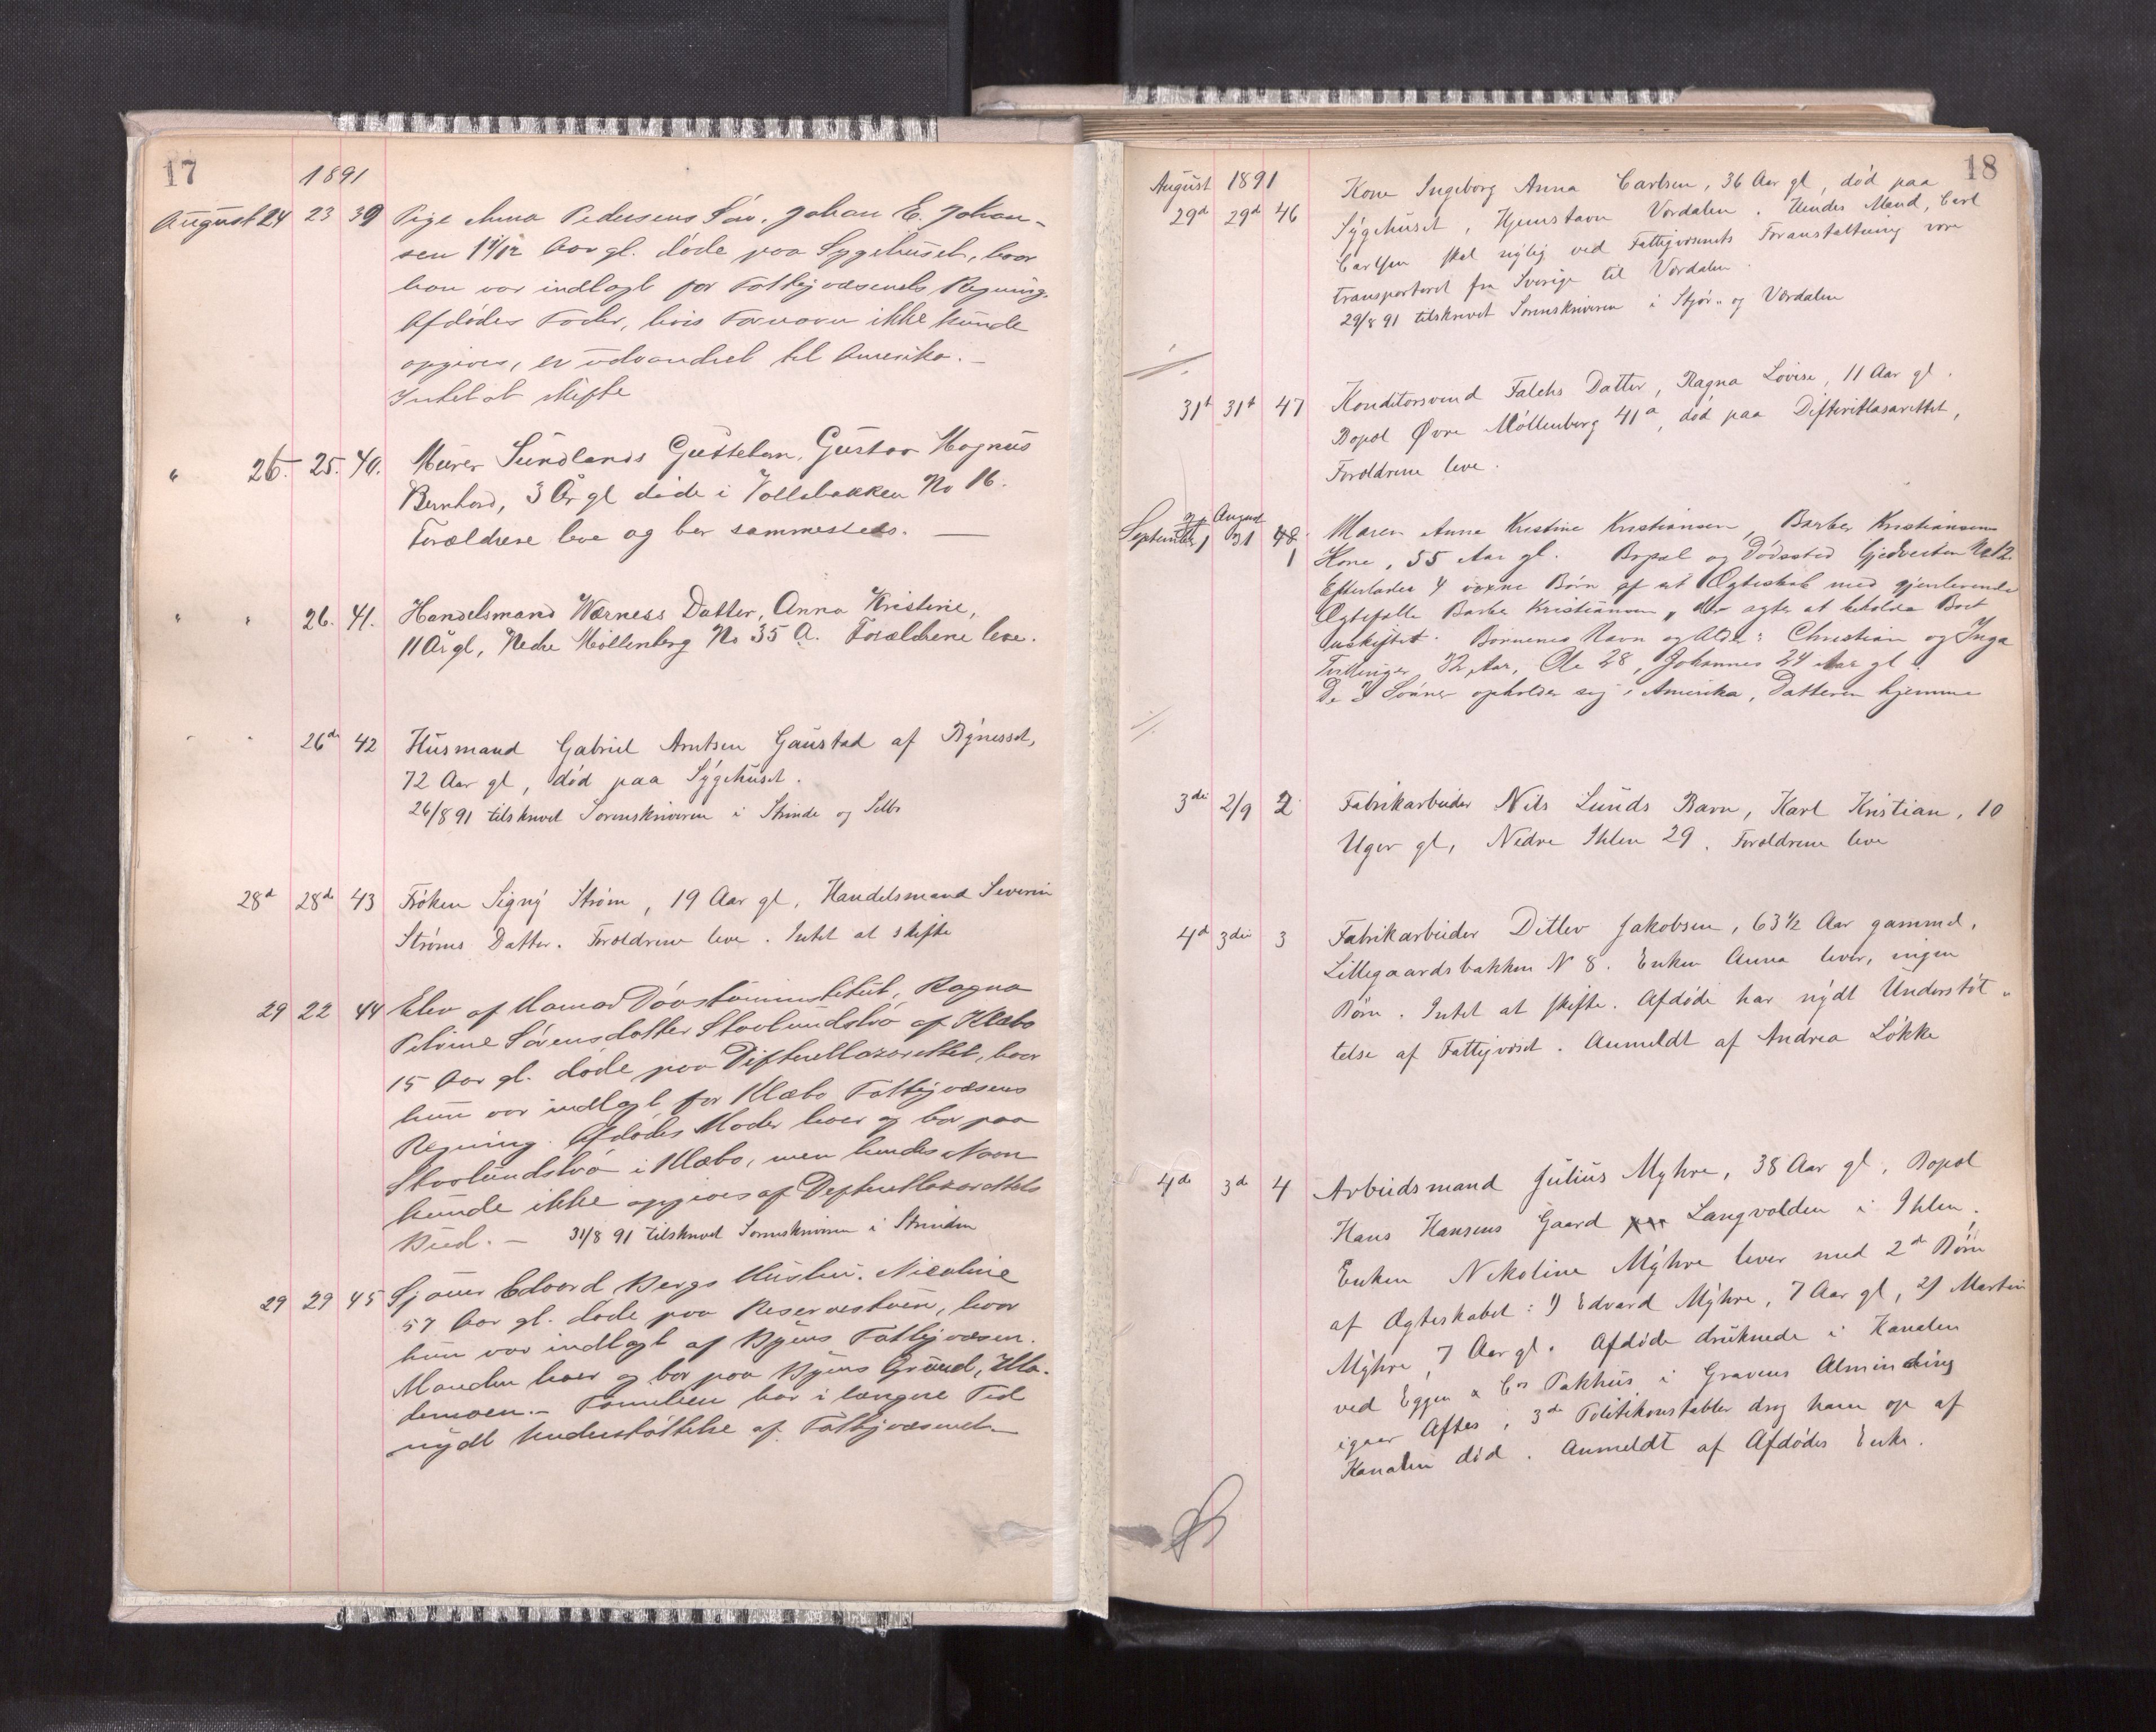 17
1891
August 24 23 39 Pige Anna Pedersens Søn, Johan E. Johan-
sen 1 1/12 Aar gl. døde paa Sygehuset, hvor
han var indlagt for Fattigvæsenets Regning.
Afdødes Fader, hvis Fornavn ikke kunde
opgives, er udvandret til Amerika. —
Intet at skifte
" 26. 25. 40. Murer Sundlands Guttebarn, Gustav Magnus
Bernhard, 3 År gl døde i Vollabakken No 16.
Forældrene leve og bor sammesteds. —
" " 26. 41. Handelsmand Værness Datter, Anna Kristine,
11 År gl, Nedre Møllenberg No 35 A. Forældrene leve.
" " 26de 42 Husmand Gabriel Arntsen Gaustad af Bynesset,
72 Aar gl, død paa Sygehuset.
26/8 91 tilskrevet Sorenskriveren i Strinde og Selbo
28d 28de 43 Frøken Signy Strøm, 19 Aar gl, Handelsmand Severin
Strøms Datter. Forældrene leve. Intet at skifte
29 22 44 Elev af Hamar Døvstuminstitut, Ragna
Petrine Sørensdatter af Klæbo
15 Aar gl. døde paa Difteritlazarettet, hvor
hun var indlagt for Klæbo Fattigvæsens
Regning. Afdødes Moder lever og bor paa
i Klæbo, men hendes Navn
kunde ikke opgives af Difteritlazarettets
Bud. — 31/8 91 tilskrevet Sorenskriveren i Strinden
29 29 45 Sjauer Edvard Bergs Hustru, Nicoline
57 Aar gl. døde paa Reservestuen, hvor
hun var indlagt af Byens Fattigvæsen.
Manden lever og bor paa Byens Grund, Ila-
. — Familien har i længere Tid
nydt Understøttelse af Fattigvæsenet —
18
August 1891
29d 29d 46 Kone Ingeborg Anna Carlsen, 36 Aar gl, død paa
Sygehuset, Hjemstavn Værdalen. Hendes Mand, Carl
Carlsen skal nylig ved Fattigvæsenets Foranstaltning være
transporteret fra Sverige til Værdalen.
29/8 91 tilskrevet Sorenskriveren i Stjør- og Værdalen
31t 31t 47 Konditorsvend Falchs Datter, Ragna Lovise, 11 Aar gl.
Bopæl Øvre Møllenberg 41a, død paa Difteritlasarettet,
Forældrene leve.
August
September 1 31 48. Maren Anna Kristine Kristiansen, Barber Kristiansens
1 Kone, 55 Aar gl. Bopæl og Dødssted Gjedvesten No 12.
Efterlader 4 voxne Børn af sit Ægteskab med gjenlevende
Ægtefælle Barber Kristiansen, der agter at beholde Boet
uskiftet. Børnenes Navn og Alder: Christian og Inga
Tvillinger, 32 Aar, Ole 28, Johannes 24 Aar gl.
De 3 Sønner opholder sig i Amerika, Datteren hjemme
3die 2/9 2 Fabrikarbeider Nils Lunds Barn, Karl Kristian, 10
Uger gl, Nedre Ihlen 29. Forældrene leve
4d 3die 3 Fabrikarbeider Ditlev Jakobsen, 63 1/2 Aar gammel,
Lillegaardsbakken N 8. Enken Anna lever, ingen
Børn. Intet at skifte. Afdøde har nydt Understøt-
telse af Fattigvæset. Anmeldt af Andrea Løkke
4de 3d 4 Arbeidsmand Julius Myhre, 38 Aar gl, Bopæl
Hans Hansens Gaard paa Langvolden i Ihlen.
Enken Nikoline Myhre lever med 2de Børn
af Ægteskabet: 1) Edvard Myhre, 7 Aar gl, 2) Martin
Myhre, 7 Aar gl. Afdøde druknede i Kanalen
ved Eggen & Cos Pakhus i Gravens Alminding
igaar Aftes, 3de Politikonstabler drog ham op af
Kanalen død. Anmeldt af Afdødes Enke.